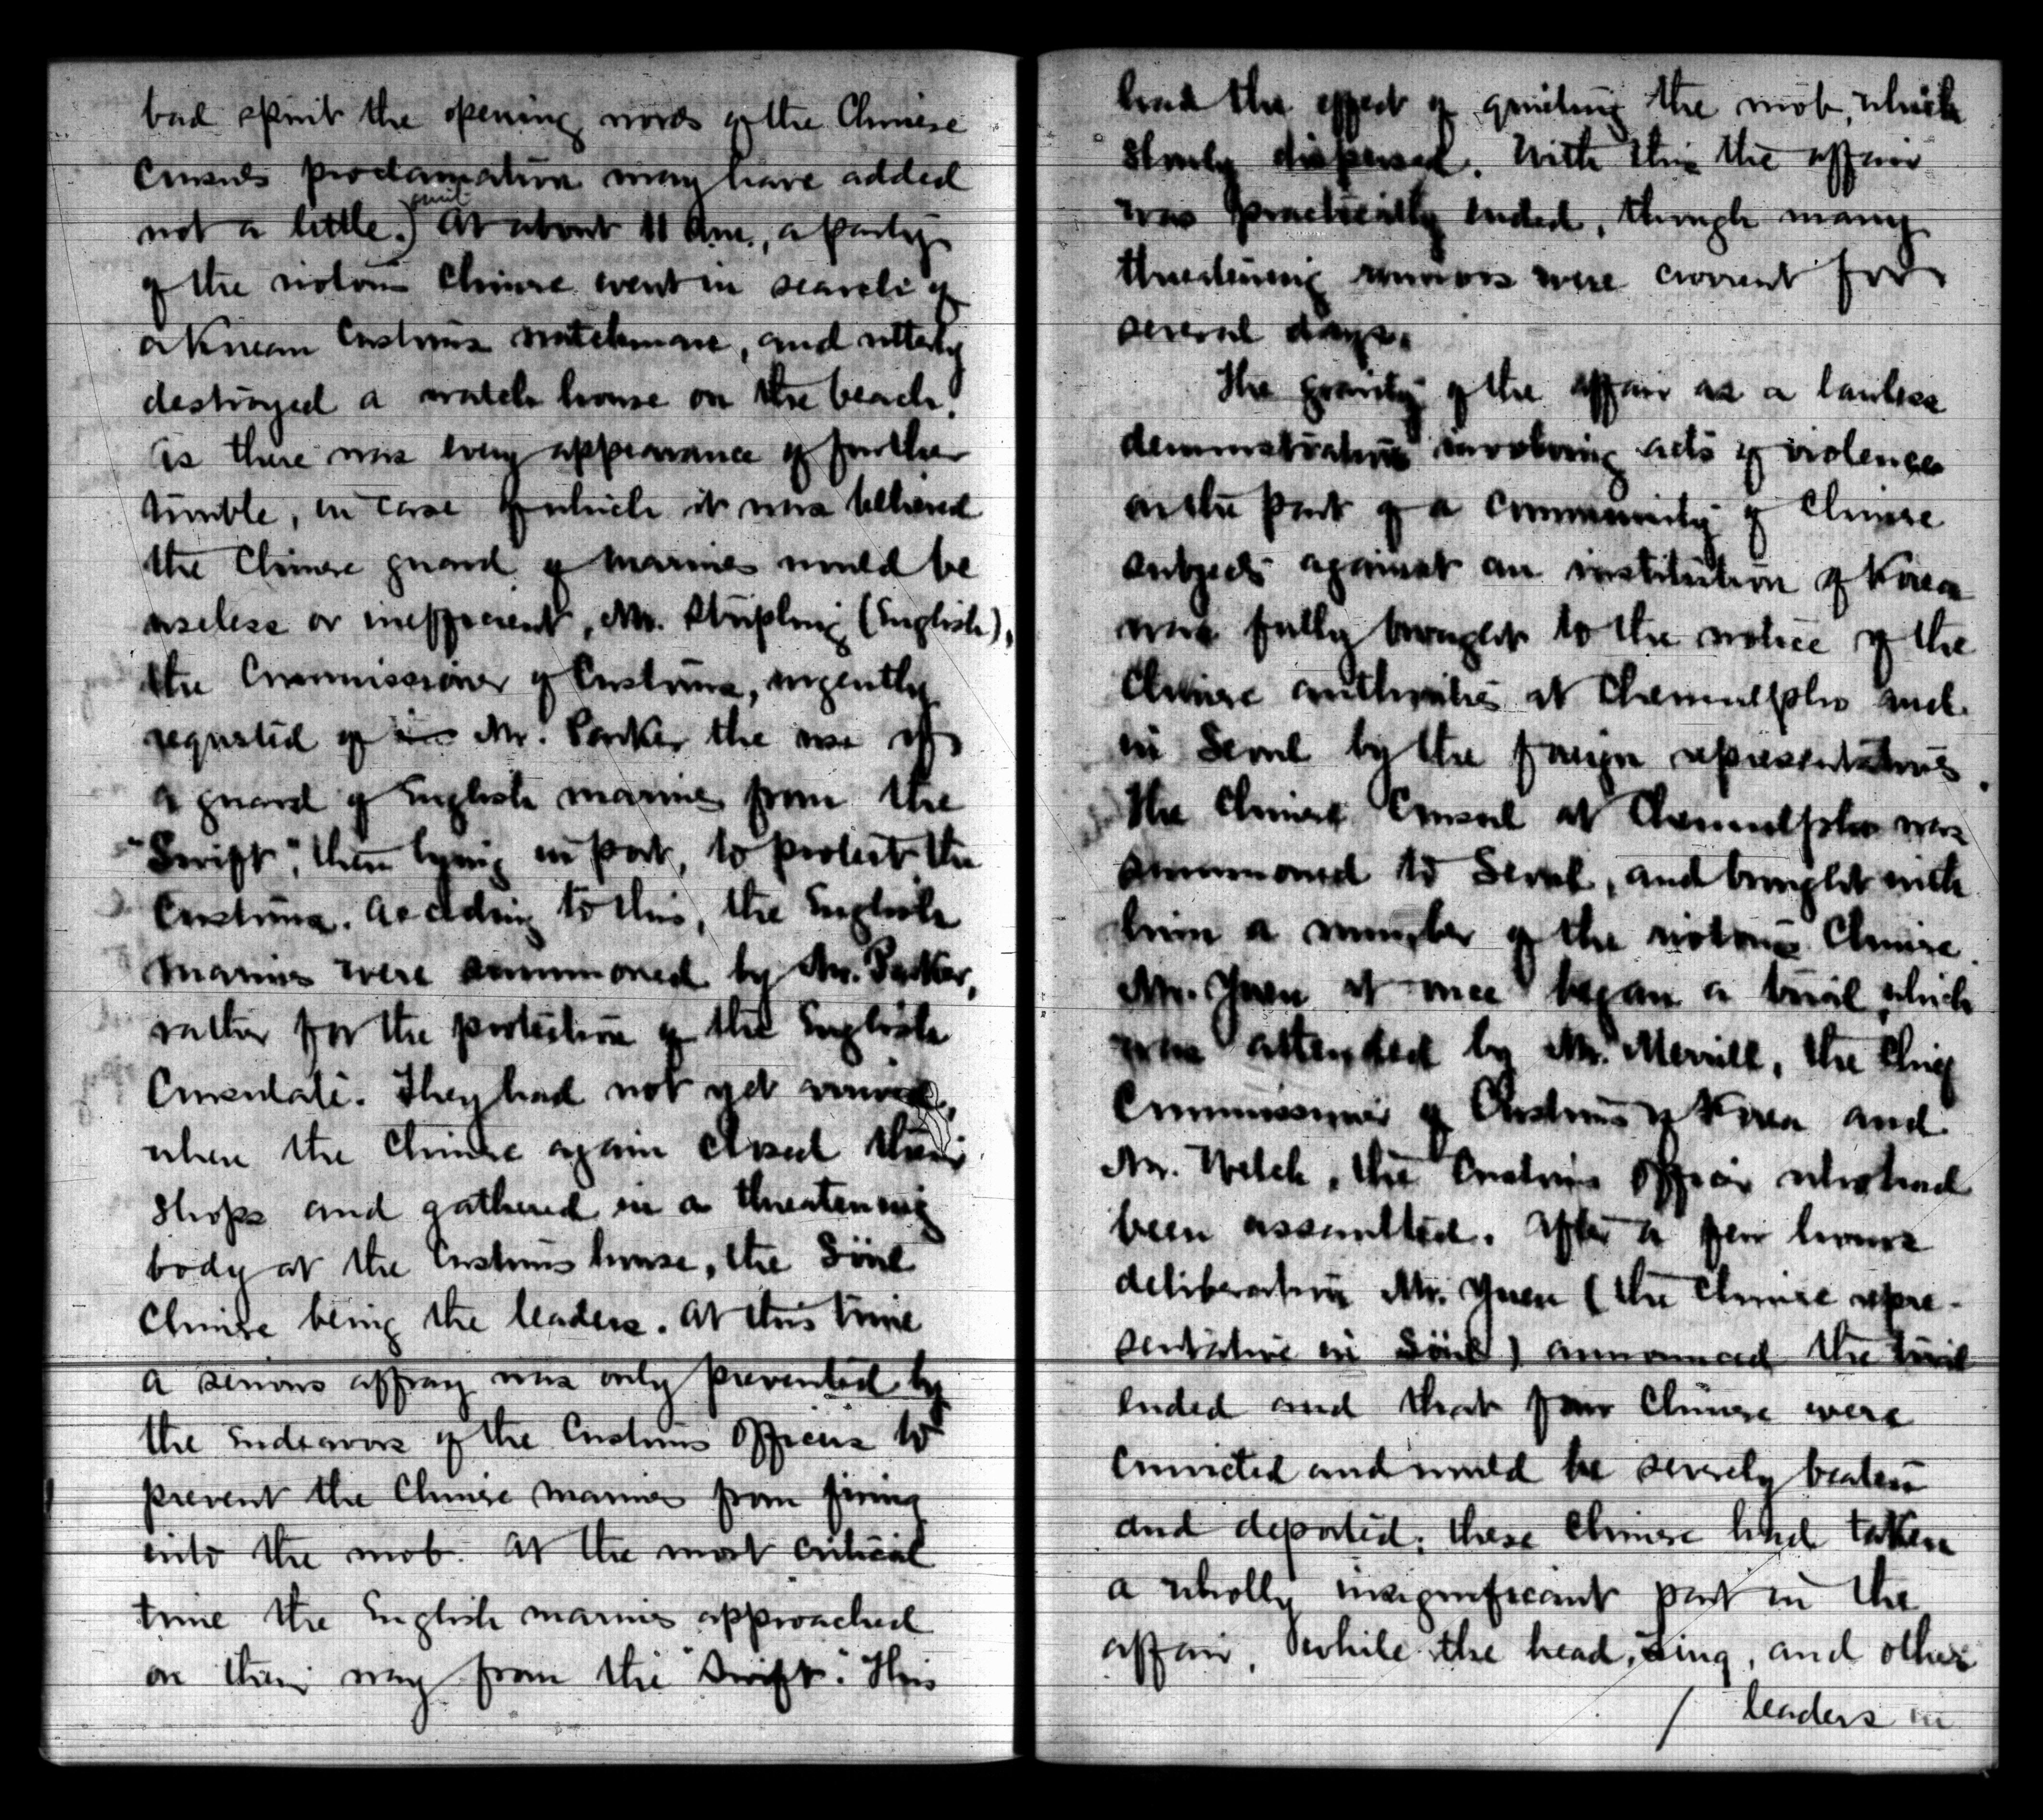 bad spirit the opening words of the Chinese
Consuls proclamation may have added
not a little.) At about 11 a.m., a party
of the riotous Chinese went in search of
a Korean Customs watchman, and utterly
destroyed a watch house on the beach.
As there was every appearance of further
trouble, in case of which it was believed
the Chinese guard of marines would be
useless or inefficient, Mr. Stripling (English),
the Commissioner of Customs, urgently
requsted of Mr. Parker the use of
a guard of English marines from the
"Swift", then lying in port, to protect the
Customs. Acceding to this, the English
marines were summoned by Mr. Parker,
rather for the protection of the English
Consulate. They had not yet arrived,
when the Chinese again closed their
shops and gathered in a threatening
body at the Customs house, the Söul
Chinese being the leaders. At this time
a serious affray was only prevented by
the endeavors of the Customs officers to
prevent the Chinese marines from firing
into the mob. At the most critical
time the English marines approached
on their way from the "Swift". This
had the effect of quieting the mob, which
slowly dispersed. With this the affair
was practically ended, though many
threatening rumors were current for
several days.
The gravity of the affair as a lawless
demonstration involving acts of violence
on the part of a community of Chinese
subjects against an institution of Korea
was fully brought to the notice of the
Chinese authorities at Chemulpho and
in Seoul by the foreign representatives.
The Chinese Consul at Chemulpho was
summoned to Seoul, and brought with
him a number of the riotous Chinese.
Mr. Yuen at once began a trial which
was attended by Mr. Merrill, the Chief
Commissioner of Customs of Korea and
Mr. Welch, the Customs officer who had
been assaulted. After a few hours
deliberation Mr. Yuen (the Chinese repre-
sentative in Söul) announced the trial
ended and that four Chinese were
convicted and would be severely beaten
and deported; these Chinese had taken
a wholly insignificant part in the
affair, while the head, and other
leaders in